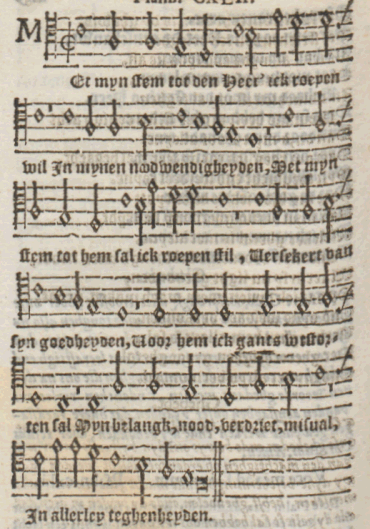 Psalm CXLII.
M
Et myn stem tot den Heer' ick roepen
wil In mynen nodwendigheyden, Met myn
stem tot hem sal ick roepen stil, Versekert van
syn goedheyden, Voor hem ick gants wtstor-
ten sal Myn belangk, nood, verdriet, misual,
In allerley teghenheyden.